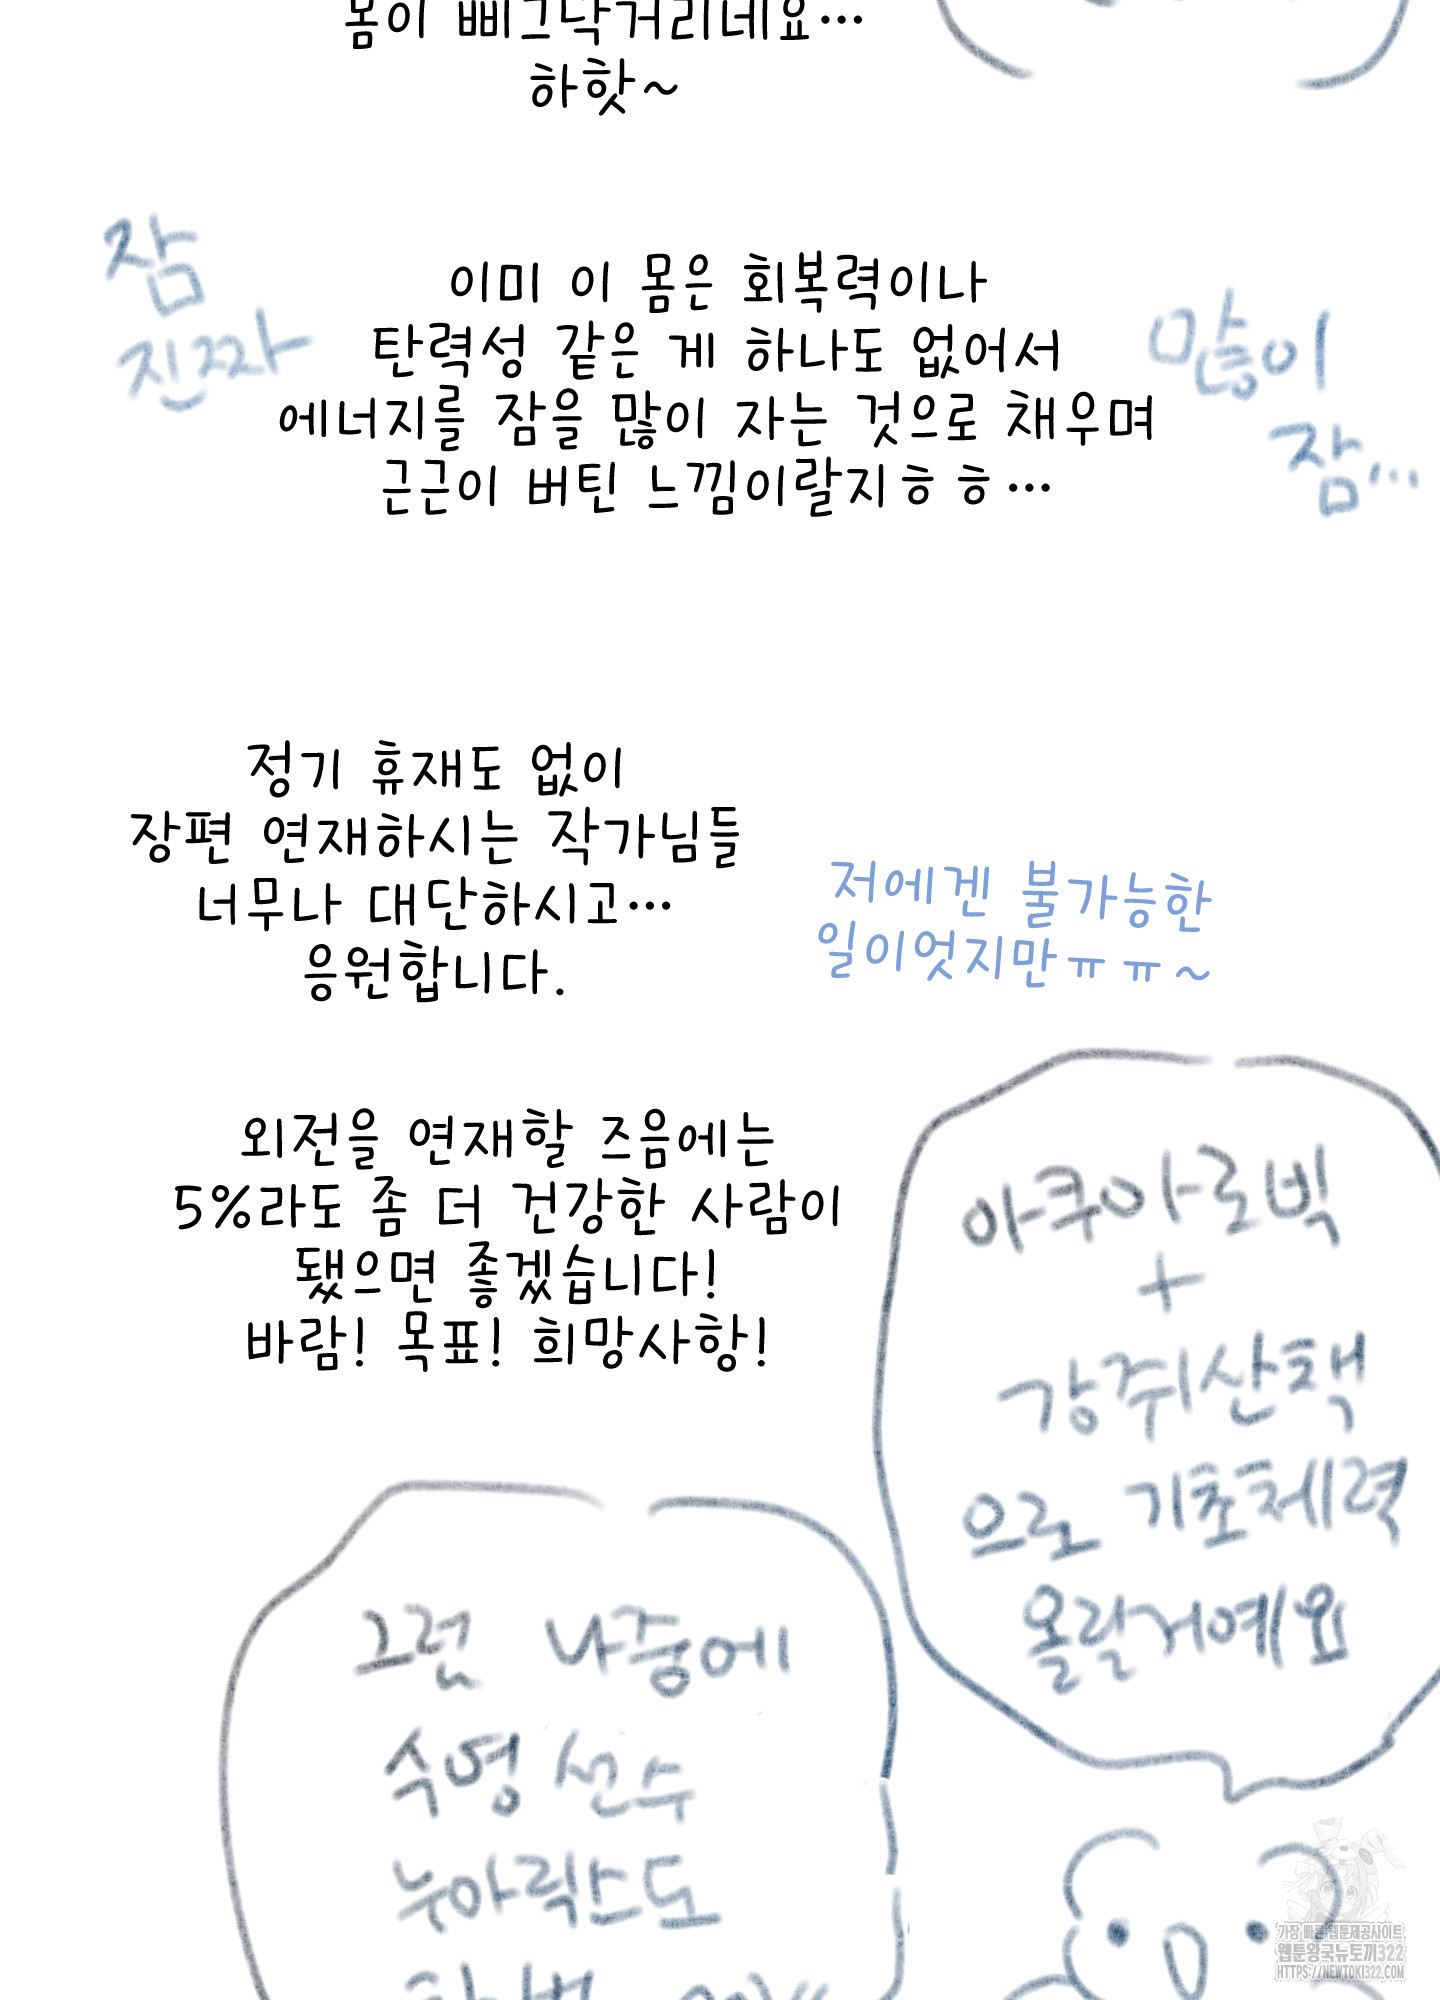 몸이 삐그덕거리네요...
하핫~
잠
진짜
이미 이 몸은 회복력이나
탄력성 같은 게 하나도 없어서
에너지를 잠을 많이 자는 것으로 채우며
근근이 버틴 느낌이랄지ㅎㅎ...
많이
잠...
정기 휴재도 없이
장편 연재하시는 작가님들
너무나 대단하시고...
응원합니다.
저에겐 불가능한
일이엇지만ㅠㅠ~
외전을 연재할 즈음에는
5%라도 좀 더 건강한 사람이
됐으면 좋겠습니다!
바람! 목표! 희망사항!
아쿠아로빅
+
강쥐산책
으로 기초체력
올릴거예요
그런 나중에
수영 선수
누아릭스도
가장 빠른 웹툰제공사이트
웹툰왕국뉴토끼322
HTTPS://NEWTOKI322.COM